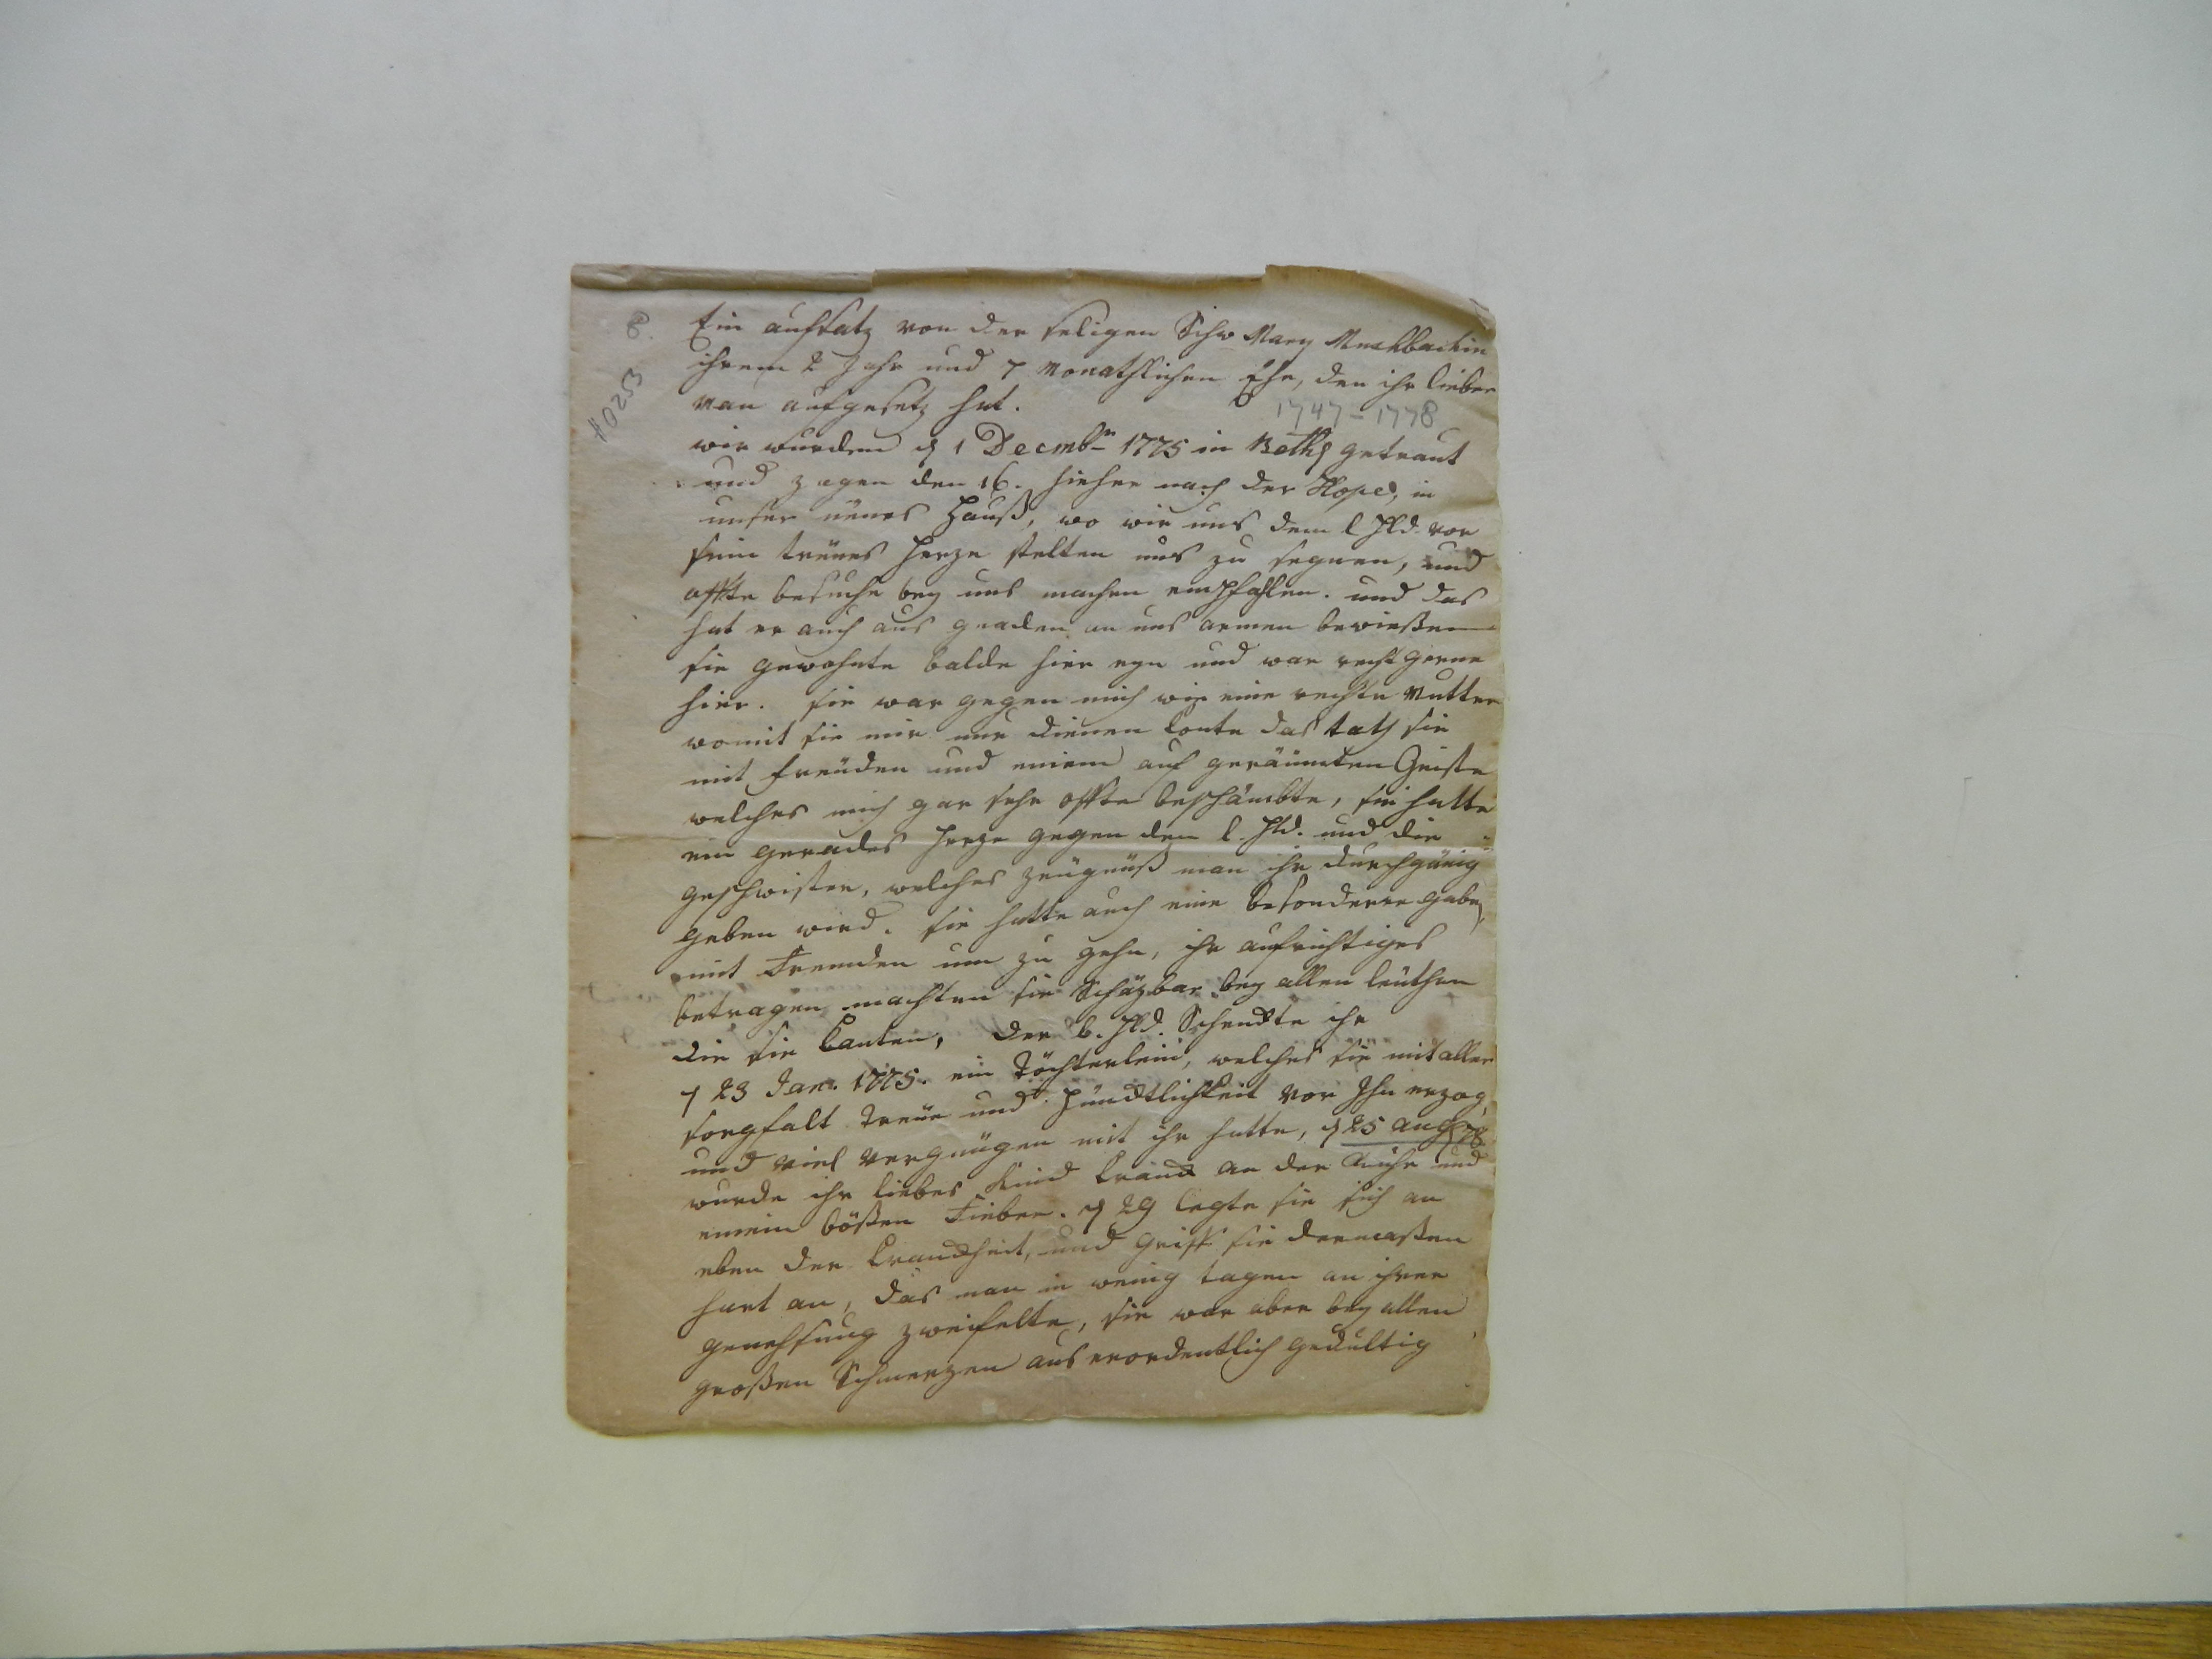 8.
#0253
Ein aufsatz von der seligen Schw Mary Mushbachin
ihrem 2 Jahr und 7 Monathlichen Ehe, den ihr lieber
Man aufgesetz hat.
1747-1778
wir wurden d 1 Decmbr 1775 in Beth getraut
und zogen den 16. hieher nach der Hope, in
unser neues Hauß, wo wir uns dem l Hld. vor
sein treues Herze stelten uns zu segnen, und
offte besuche bey uns machen empfahlen. und das
hat er auch aus gnaden an uns armen bewießen
sie gewohnte balde hier eyn und war recht gerne
hier. sie war gegen mich wie eine rechte Mutter
womit sie mir nur dienen konte das tath sie
mit freuden und einem auf geräumten Geiste
welches mich gar sehr offte beschämbte, sie hatte
ein gerades Herze gegen den l. Hld. und die
geschwister, welches zeugnüß man ihr durchgänig
geben wird. sie hatte auch eine besondere gabe,
mit Fremden um zu gehn, ihr aufrichtiges
betragen machten sie Schäzbar bey allen leuthen
die sie kanten, der l. Hld. Schenckte ihr
d 23 Jan. 1775. ein Töchterlein, welches sie mit aller
sorgfalt treue und Pünctlichkeit vor Ihn erzog,
und viel vergnügen mit ihr hatte, d 25 aug 78
wurde ihr liebes Kind kranck an der Ruhr und
einem bößen Fieber. d 29 legte sie sich an
eben der kranckheit, und griff sie dermaßen
hart an, das man in wenig tagen an ihrer
genehsung zweifelte, sie war aber bey allen
großen Schmerzen aus erordentlich gedultig